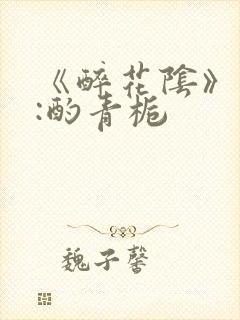 《醉花陰》
:酌青栀
魏子馨